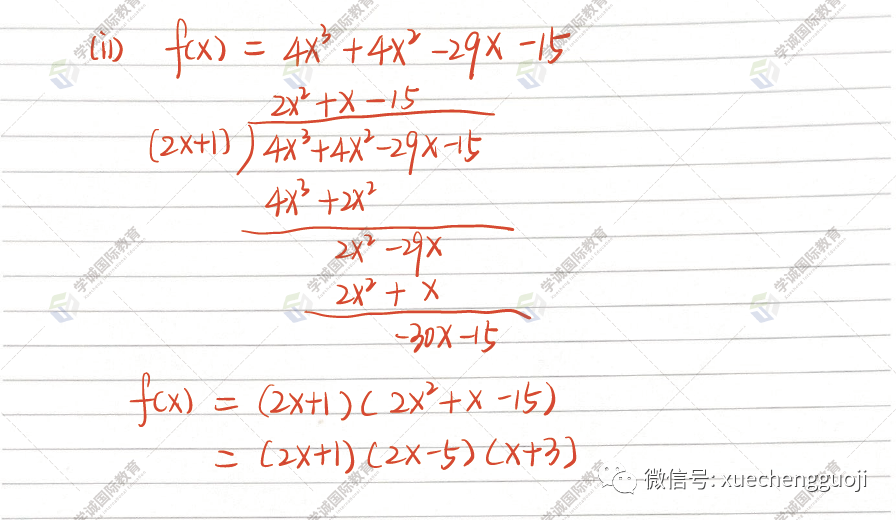 (ii) f(x) = 4x³ + 4x² - 29x - 15
2x² + x - 15
(2x+1) ) 4x³ + 4x² - 29x - 15
4x³ + 2x²
2x² - 29x
2x² + x
-30x - 15
f(x) = (2x+1)(2x² + x - 15)
= (2x+1)(2x-5)(x+3)
微信号: xuechengguoji
学诚国际教育